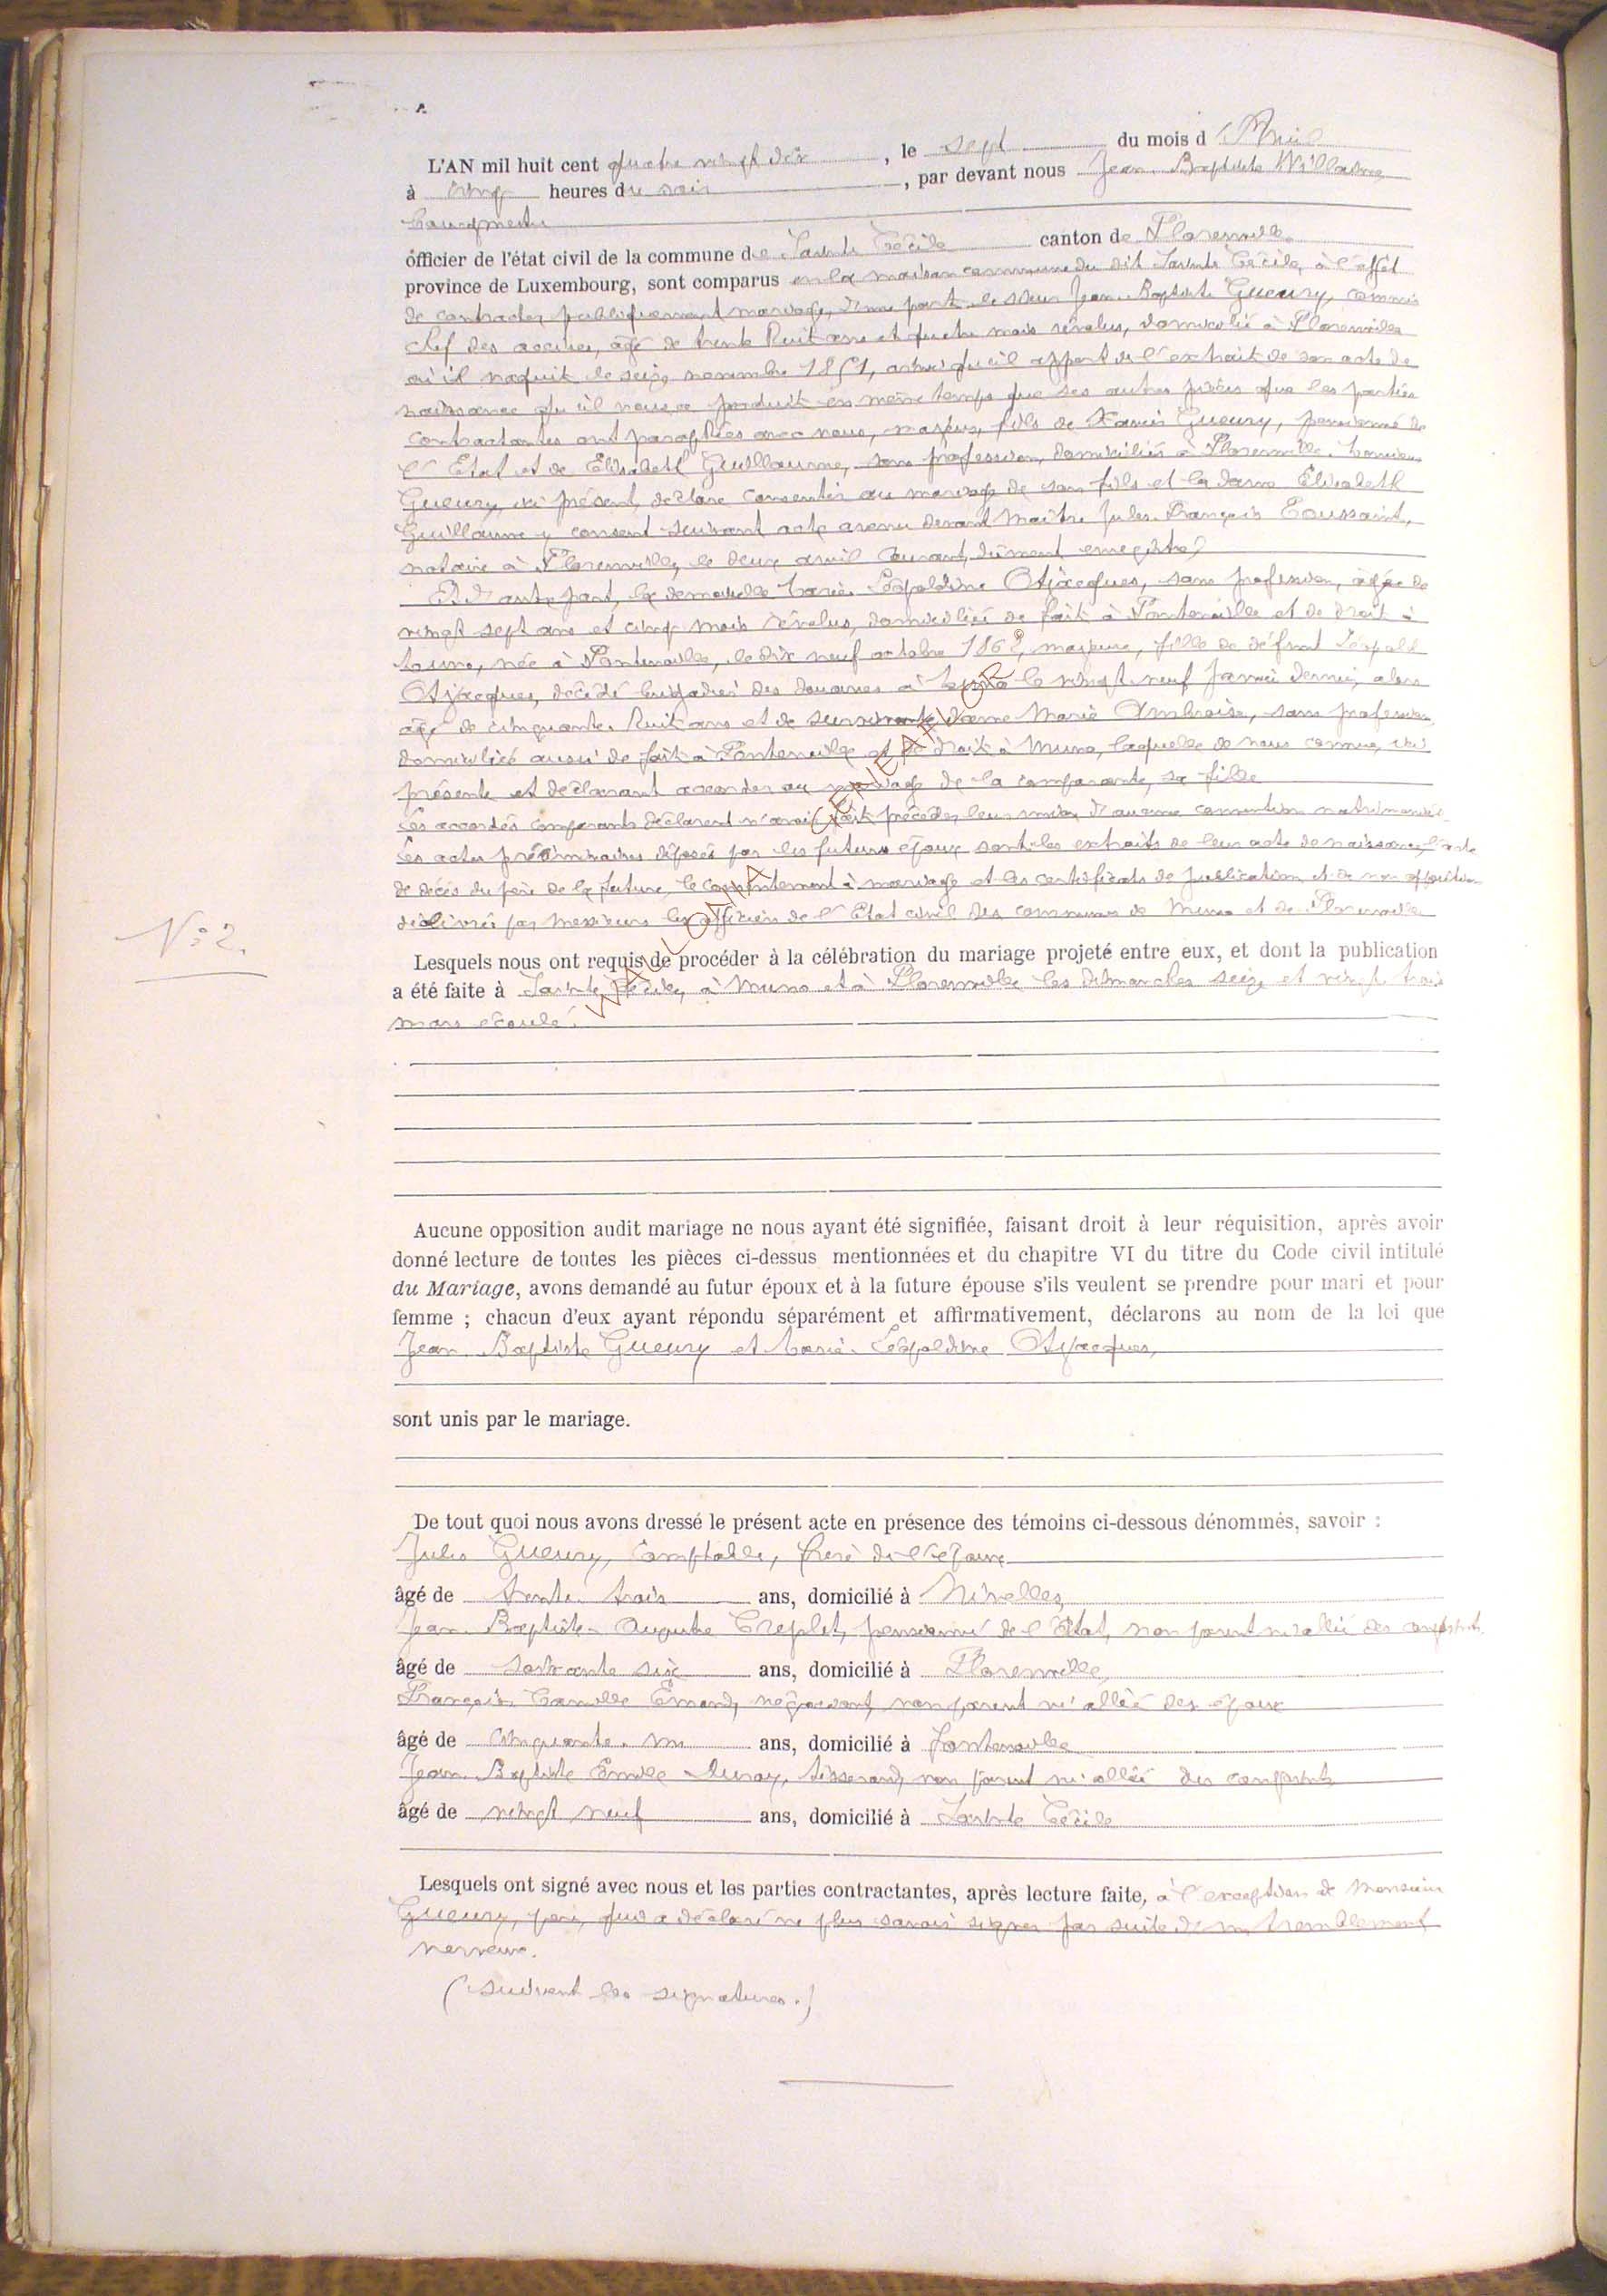 L'AN mil huit cent quatre vingt dix, le sept du mois d'Avril
à cinq heures du soir, par devant nous Jean Baptiste Willaime
bourgmestre
officier de l'état civil de la commune de Sainte Cécile canton de Florenville
province de Luxembourg, sont comparus en la maison commune du dit Sainte Cécile, à l'effet
de contracter publiquement mariage, d'une part le sieur Jean-Baptiste Gueury, commis
chef des accises, âgé de trente huit ans et quatre mois révolus, domicilié à Florenville
où il naquit le seize novembre 1851, ainsi qu'il appert de l'extrait de son acte de
naissance qu'il nous a produit en même temps que ses autres pièces que les parties
contractantes ont paraphées avec nous, majeur, fils de Xavier Gueury, pensionné de
l'Etat et de Elisabeth Guillaume, sans profession, domiciliés à Florenville.
Gueury, ici présent, déclare consentir au mariage de son fils et la dame Elisabeth
Guillaume y consent suivant acte avenu devant Maître Jules François Toussaint,
notaire à Florenville, le deux avril courant, dûment enregistré
Et d'autre part, la demoiselle Marie Léopoldine Stjacques, sans profession, âgée de
vingt sept ans et cinq mois révolus, domiciliée de fait à Fontenoille et de droit à
Muno, née à Fontenoille, le dix neuf octobre 1862, majeure, fille de défunt Léopold
Stjacques, décédé brigadier des douanes à Muno le vingt neuf Janvier dernier, alors
âgé de cinquante huit ans et de survivante dame Marie Ambroise, sans profession
domiciliée aussi de fait à Fontenoille et de droit à Muno, laquelle de nous connue, ici
présente et déclarant accorder au mariage de la comparante, sa fille
Les accordés comparants déclarent n'avoir fait précéder leur union d'aucune convention matrimoniale.
Les actes préliminaires déposés par les futurs époux sont les extraits de leur acte de naissance, l'acte
de décès du père de la future, le consentement à mariage et les certificats de publication et de non opposition
délivrés par Messieurs les officiers de l'Etat civil des communes de Muno et de Florenville
N° 2.
Lesquels nous ont requis de procéder à la célébration du mariage projeté entre eux, et dont la publication
a été faite à Sainte Cécile, à Muno et à Florenville les dimanches seize et vingt trois
mars écoulé.
WALLONIA GENEANEUM
Aucune opposition audit mariage ne nous ayant été signifiée, faisant droit à leur réquisition, après avoir
donné lecture de toutes les pièces ci-dessus mentionnées et du chapitre VI du titre du Code civil intitulé
du Mariage, avons demandé au futur époux et à la future épouse s'ils veulent se prendre pour mari et pour
femme ; chacun d'eux ayant répondu séparément et affirmativement, déclarons au nom de la loi que
Jean Baptiste Gueury et Marie Léopoldine Stjacques,
sont unis par le mariage.
De tout quoi nous avons dressé le présent acte en présence des témoins ci-dessous dénommés, savoir :
Jules Gueury, Comptable, frère de l'époux
âgé de trente trois ans, domicilié à Nivelles,
Jean Baptiste Auguste Creplet, pensionné de l'Etat, non parent ni allié des comparants.
âgé de soixante six ans, domicilié à Florenville,
François Camille Emond, négociant, non parent ni allié des époux
âgé de cinquante un ans, domicilié à fontenoille
Jean Baptiste Emile Duroy, tisserand, non parent ni allié des comparants
âgé de vingt neuf ans, domicilié à Sainte Cécile
Lesquels ont signé avec nous et les parties contractantes, après lecture faite, à l'exception de Monsieur
Gueury, père, qui a déclaré ne plus savoir signer par suite d'un tremblement
nerveux.
(suivent les signatures.)